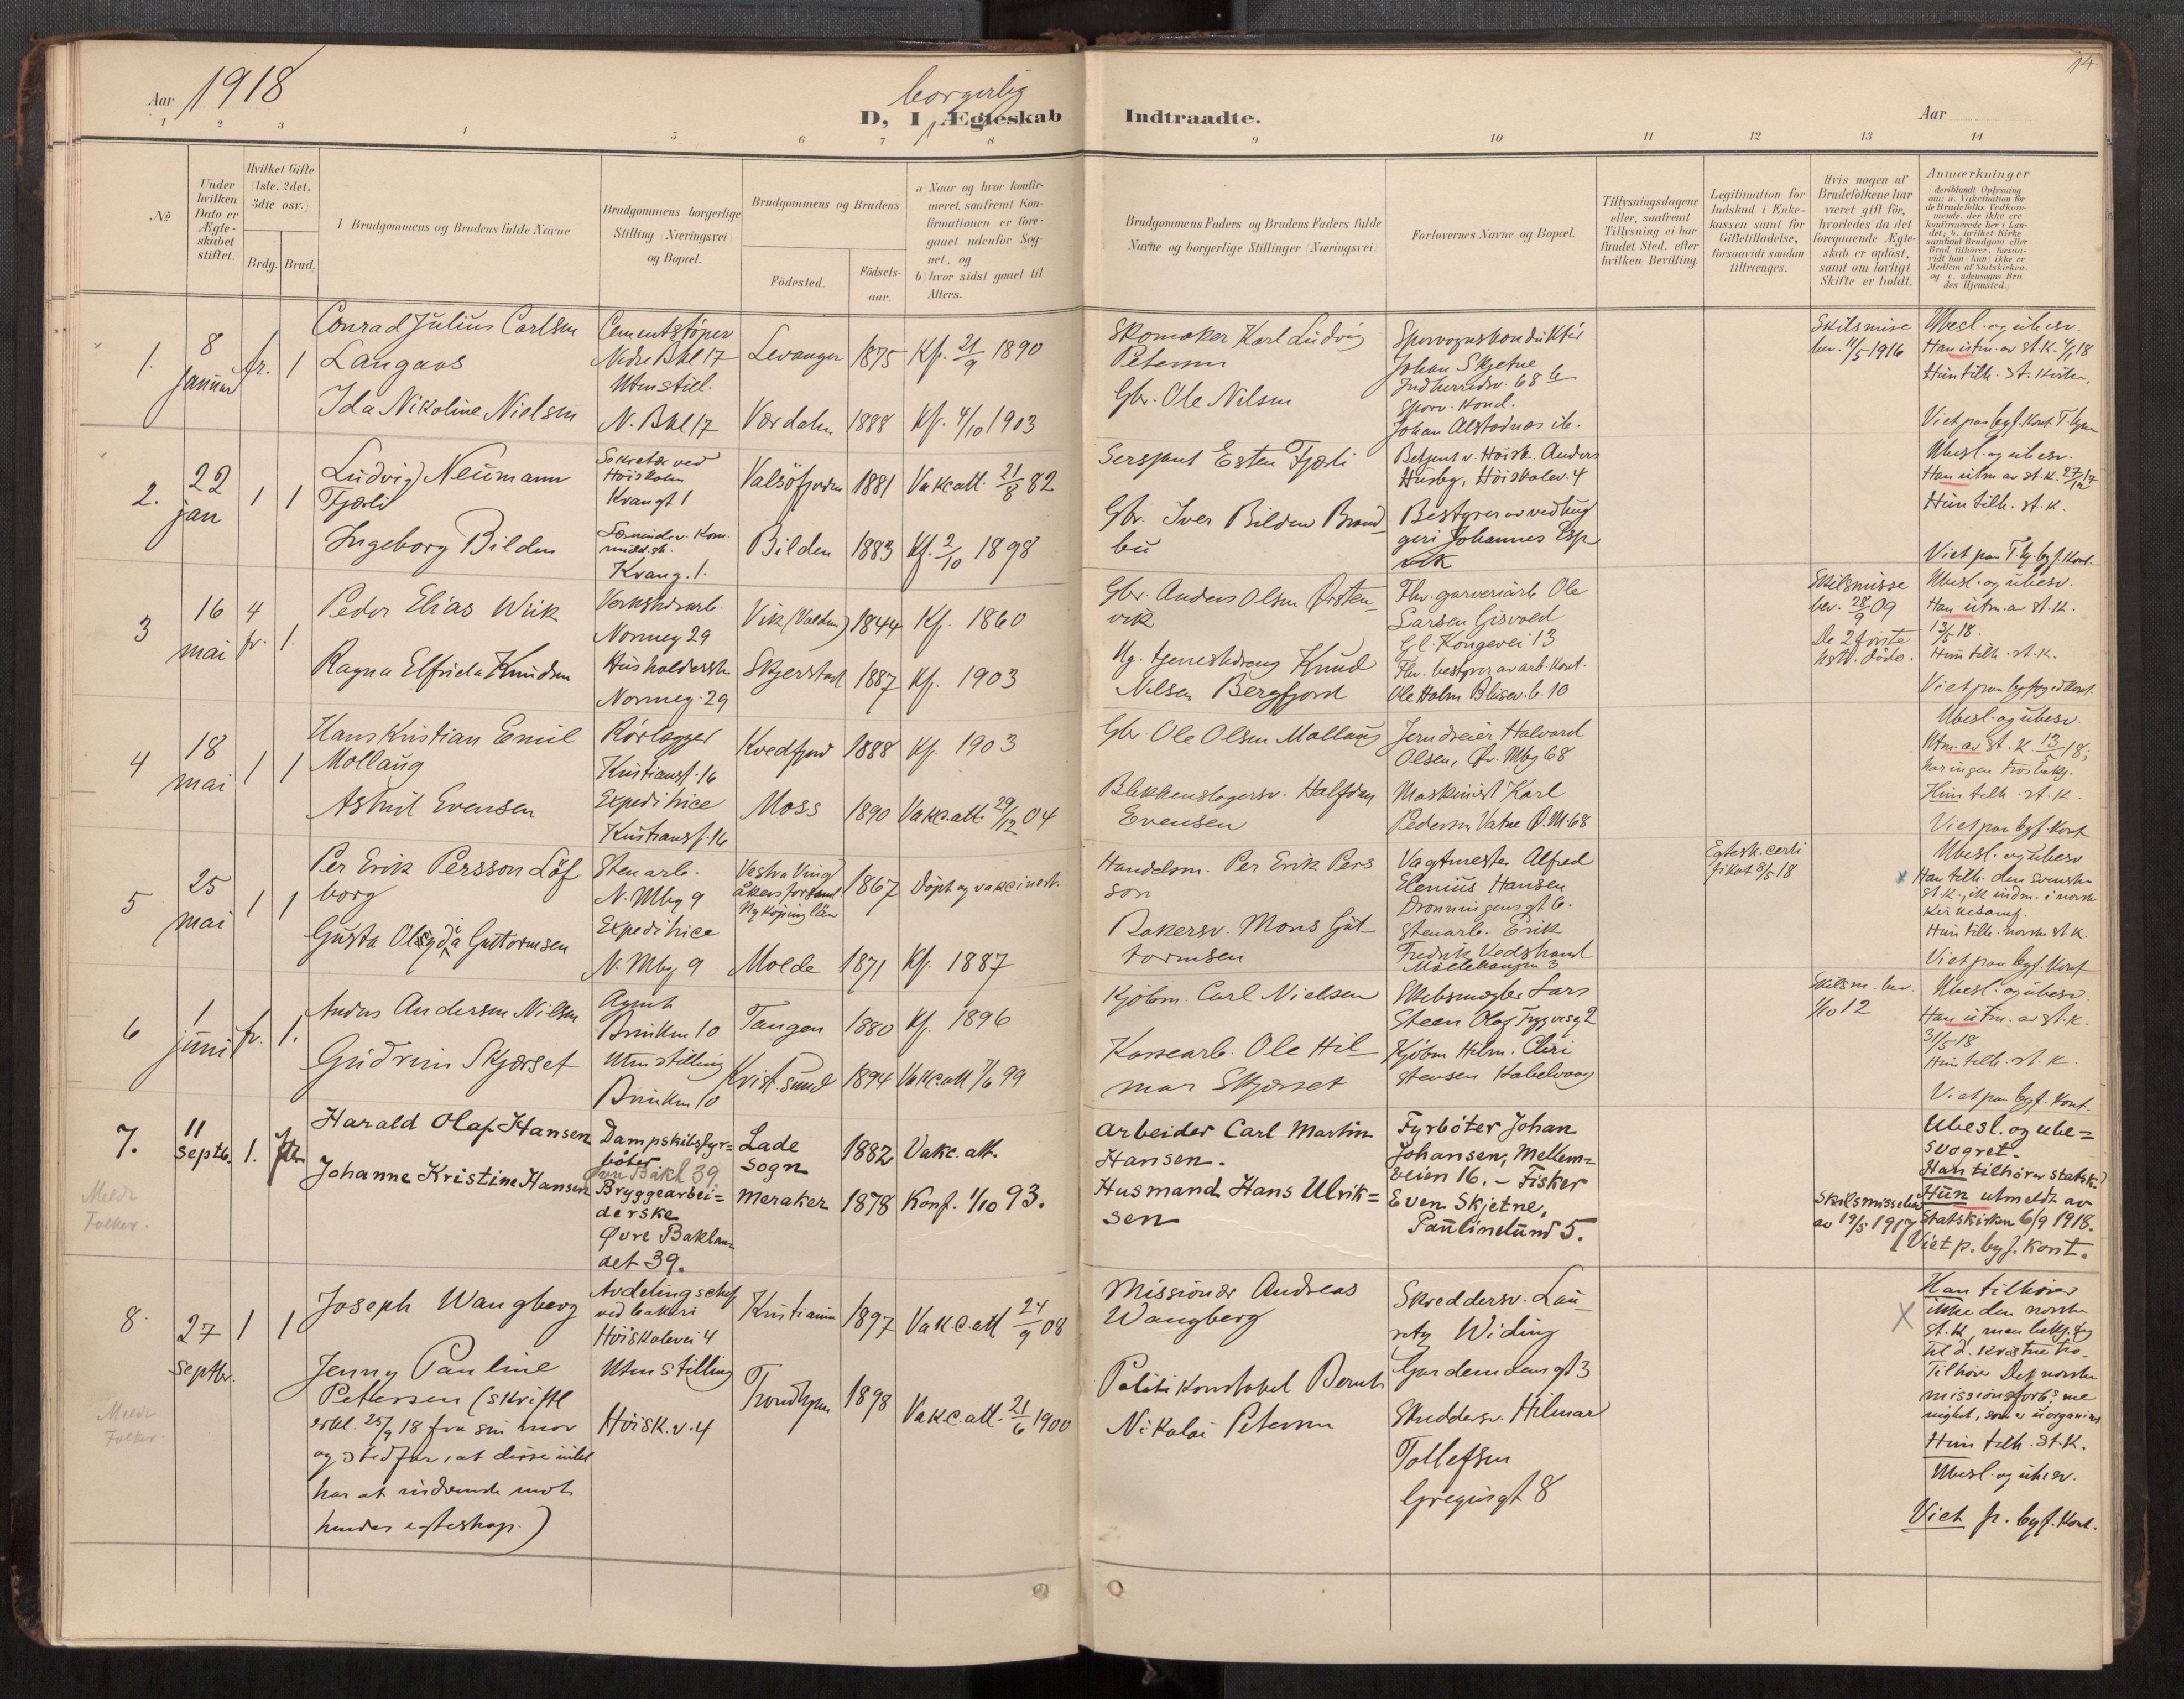 14
Aar 1918
borgerlig
D, I Ægteskab Indtraadte.
Aar
1 2 3 4 5 6 7 8 9 10 11 12 13 14
No
Under
hvilken
Dato er
Ægte-
skabet
stiftet.
Hvilket Gifte
(1ste, 2det,
3die osv.)
Brdg. Brud.
I Brudgommens og Brudens fulde Navne
Brudgommens borgerlige
Stilling (Næringsvei)
og Bopæl.
Brudgommens og Brudens
Födested.
Födsels-
aar.
a) Naar og hvor konfir-
meret, saafremt Kon-
firmationen er fore-
gaaet udenfor Sog-
net, og
b) hvor sidst gaaet til
Alters.
Brudgommens Faders og Brudens Faders fulde
Navne og borgerlige Stillinger (Næringsvei)
Forlovernes Navne og Bopæl.
Tillysningsdagene
eller, saafremt
Tillysning ei har
fundet Sted, efter
hvilken Bevilling.
Legitimation for
Indskud i Enke-
kassen samt for
Giftetilladelse,
forsaavidt saadan
tiltrænges.
Hvis nogen af
Brudefolkene har
været gift för,
hvorledes da det
foregaaende Ægte-
skab er oplöst,
samt om lovligt
Skifte er holdt.
Anmærkninger
(deriblandt Oplysning
om: a. Vakcination for
de Brudefolks Vedkom-
mende, der ikke ere
konfirmerede her i Lan-
det; b. hvilket Kirke
samfund Brudgom eller
Brud tilhörer, forsaa-
vidt han (hun) ikke er
Medlem af Statskirken
og c. udensogns Bru
des Hjemsted.)
1.
8
januar
fr. 1
Conrad Julius Carlsen
Langaas
Ida Nikoline Nielsen
Cementstöper
Nedre Bkl 17
Uten stil.
N. Bkl 17
Levanger 1875 Kf. 21/9 1890
Værdalen 1888 Kf. 4/10 1903
Skomaker Karl Ludvig
Petersen
Gbr. Ole Nilsen
Sporvognskonduktör
Johan Skjetne
Indherredsv. 68 b
Sporv. Kond.
Johan Alstadnæs ib.
Skilsmisse
bev. 11/5 1916
Ubesl. og ubesv.
Han utm. av st.k. 4/1 18
Hun tilh. st. kirken,
Viet paa bygf. kont T.hjem
2.
22
jan
1 1
Ludvig Neumann
Fjærli
Ingeborg Bilden
Sekretær ved
Höiskolen
Kvangt 1
Lærerinde v. Kom.
midd.sk.
Kvang. 1.
Valsöfjorden 1881 Vakc.att. 21/8 82
Bilden 1883 Kf. 2/10 1898
Sersjant Esten Fjærli
Gbr. Iver Bilden Brand
bu
Betjent v. Höisk. Anders
Husby, Höiskolev. 4
Bestyrer av vedhug
geri Johannes Esp
vik
Ubesl. og ubesv.
Han utm. av st.k. 27/12 17
Hun tilh. st. k.
Viet paa T.hj. byf. kont.
3
16
mai
4
fr. 1.
Peder Elias Wiik
Ragna Elfrida Knudsen
Verkstedsarb.
Normeg 29
Husholderske
Normeg. 29
Vik (Valden) 1844 Kf. 1860
Skjerstad 1887 Kf. 1903
Gbr. Anders Olsen Örsten
vik
Ug. tjenestedreng Knud
Nilsen Bergfjord
Fhv. garveriarb Ole
Larsen Gisvold
Gl. Kongevei 13
Fhv. bestyrer av arb. kont.
Ole Holm Blusev. b. 10
Skilsmisse
bev. 28/9 09
De 2 förste
hstr. döde.
Ubesl. og ubesv.
Han utm. av st.k.
13/5 18.
Hun tilh. st.k.
Viet paa byfoged kont.
4
18
mai
1 1
Hans Kristian Emil
Mollaug
Astrid Evensen
Rörlægger
Kristiansf. 16
Expeditrice
Kristiansf. 16
Kvedfjord 1888 Kf. 1903
Moss 1890 Vakc.att. 29/12 04
Gbr. Ole Olsen Mollaug
Blikkenslagersv. Halfdan
Evensen
Jerndreier Halvard
Olsen, Öv. Mbg 68
Maskinist Karl
Pedersen Vatne Ö.M. 68
Ubesl. og ubesv.
Utm. av st. k. 13/5 18;
har ingen trosbekj.
Hun tilh. st.k.
Viet paa byf. kont
5
25
mai
1 1
Per Erik Persson Löf
borg
Gusta Olsyda Guttormsen
Stenarb.
N. Mbg 9
Expeditrice
N. Mbg 9
Vestra Ving
åkers forsaml
Nyköping län
1867 Döpt og vakcinert.
Molde 1871 Kf. 1887
Handelsm. Per Erik Pers
son
Bakersv. Mons Gut-
tormsen
Vagtmester Alfred
Elenius Hansen
Dronningensgt 6.
Stenarb. Erik
Fredrik Vedstrand
Möllebakken 3
Egtesk. certi
fikat 8/5 18
Ubesl. og ubesv
x Han tilh. den svenske
st.k., ik indm. i norsk
kirkesamf.
Hun tilh. norske st k.
Viet paa bygf. kont
6
1
juni
fr. 1.
Anders Andersen Nilsen
Gudrun Skjærset
Agent
Brinken 10
Uten stilling
Brinken 10
Tangen 1880 Kf. 1896
Krist.sund 1894 Vakc.att 7/6 99
Kjöbm. Carl Nielsen
Kassearb. Ole Hil-
mar Skjærset
Skibsmægler Lars
Steen Olaf Trygvesg 2
Kjöbm Hilm. Chri
stensen Kabelvaag
Skilsm. bev.
1/10 12
Ubesl. og ubesv.
Han utm. av st.k.
31/5 18
Hun tilh. st. k.
Viet paa bygf. kont.
7.
11
septb.
1. fr.
Harald Olaf Hansen
Johanne Kristine Hansen
Dampskibsfyr=
böter
Övre Bakl 39.
Bryggearbei=
derske
Øvre Baklan=
det 39.
Lade
sogn
1882 Vakc. att.
Meraker 1878 Konf. 1/10 93.
Arbeider Carl Martin
Hansen.
Husmand Hans Ulrik=
sen
Fyrböter Johan
Johansen, Mellem=
veien 16. – Fisker
Even Skjetne,
Paulinelund 5.
Skilsmissebev.
av 19/5 1917
Ubesl. og ube=
svogret.
Han tilhörer statsk.
Hun utmeldt av
Statskirken 6/9 1918.
Viet p. byf. kont.
Meldt
Folker.
8.
27
septbr.
1 1
Joseph Wangberg
Jenny Pauline
Petersen (skriftl
erkl. 25/9 18 fra sin mor
og stedfar, at disse intet
har at indvende mot
hendes egteskap.)
Avdelingschef
ved bakeri
Höiskolevei 4
Uten stilling
Höisk.v. 4
Kristiania 1897 Vakc.att 24/9 08
Trondhjem 1898 Vakc.att. 21/6 1900
Missionær Andreas
Wangberg
Politikonstabel Bernt
Nikolai Petersen
Skreddersv. Lau
ritz Widing
Gardemoensgt 3
Skreddersv. Hilmar
Tollefsen
Gregusgt 8
X
Han tilhörer
ikke den norske
st.k, men bekj. sig
til d. kristne tro.
Tilhörer Det norske
missionsforb.s me
nighet, som er uorganisert
Hun tilh. st.k.
Ubesl. og ubesv.
Viet p. byf. kont.
Meldt
Folker.